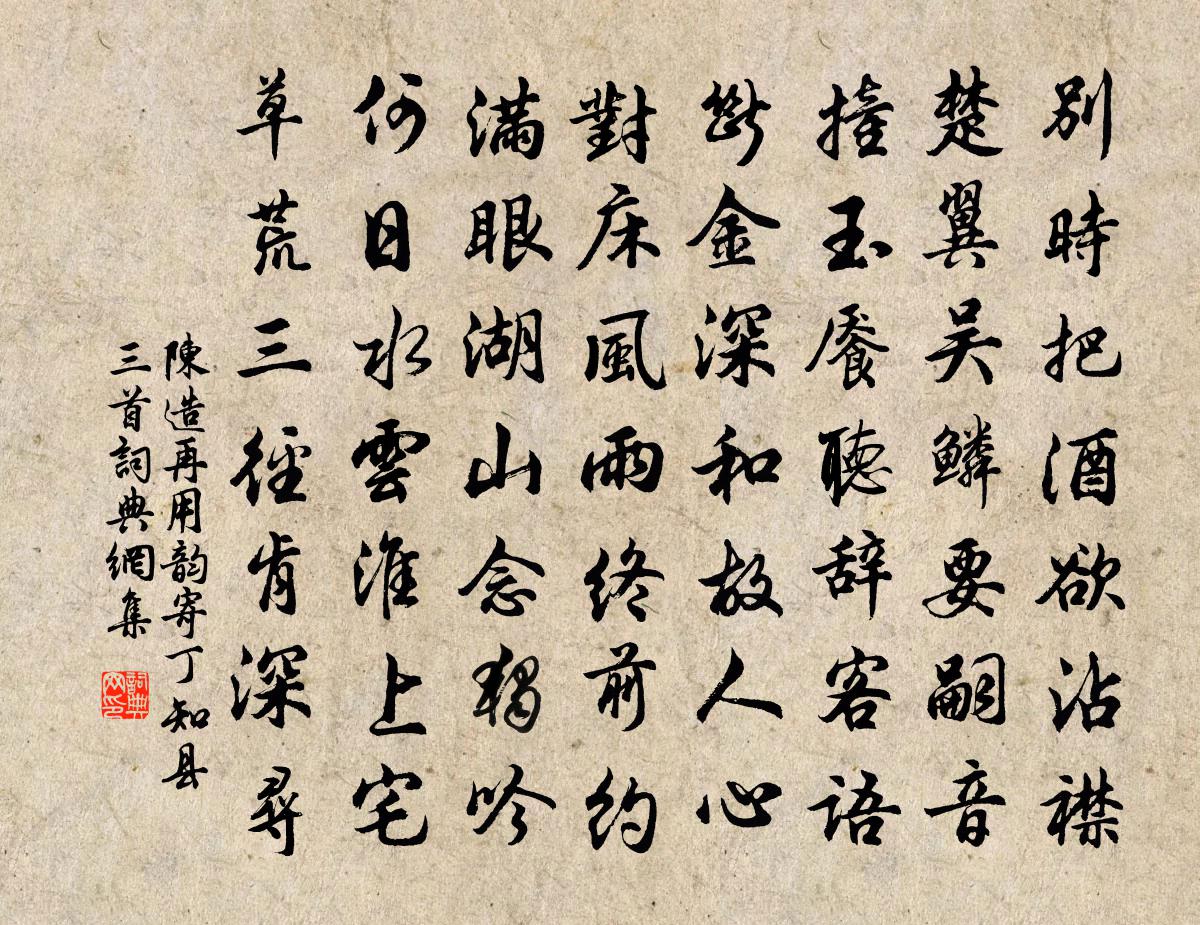 別時把酒欲沾襟
楚翼吴鱗要嗣音
撞玉飧聽辞客語
斷金深和故人心
對床風雨终前約
滿眼湖山念獨吟
何日水雲淮上宅
草荒三徑肯深尋
陳造再用韵寄丁知县
三首詞典網集
詞典網印